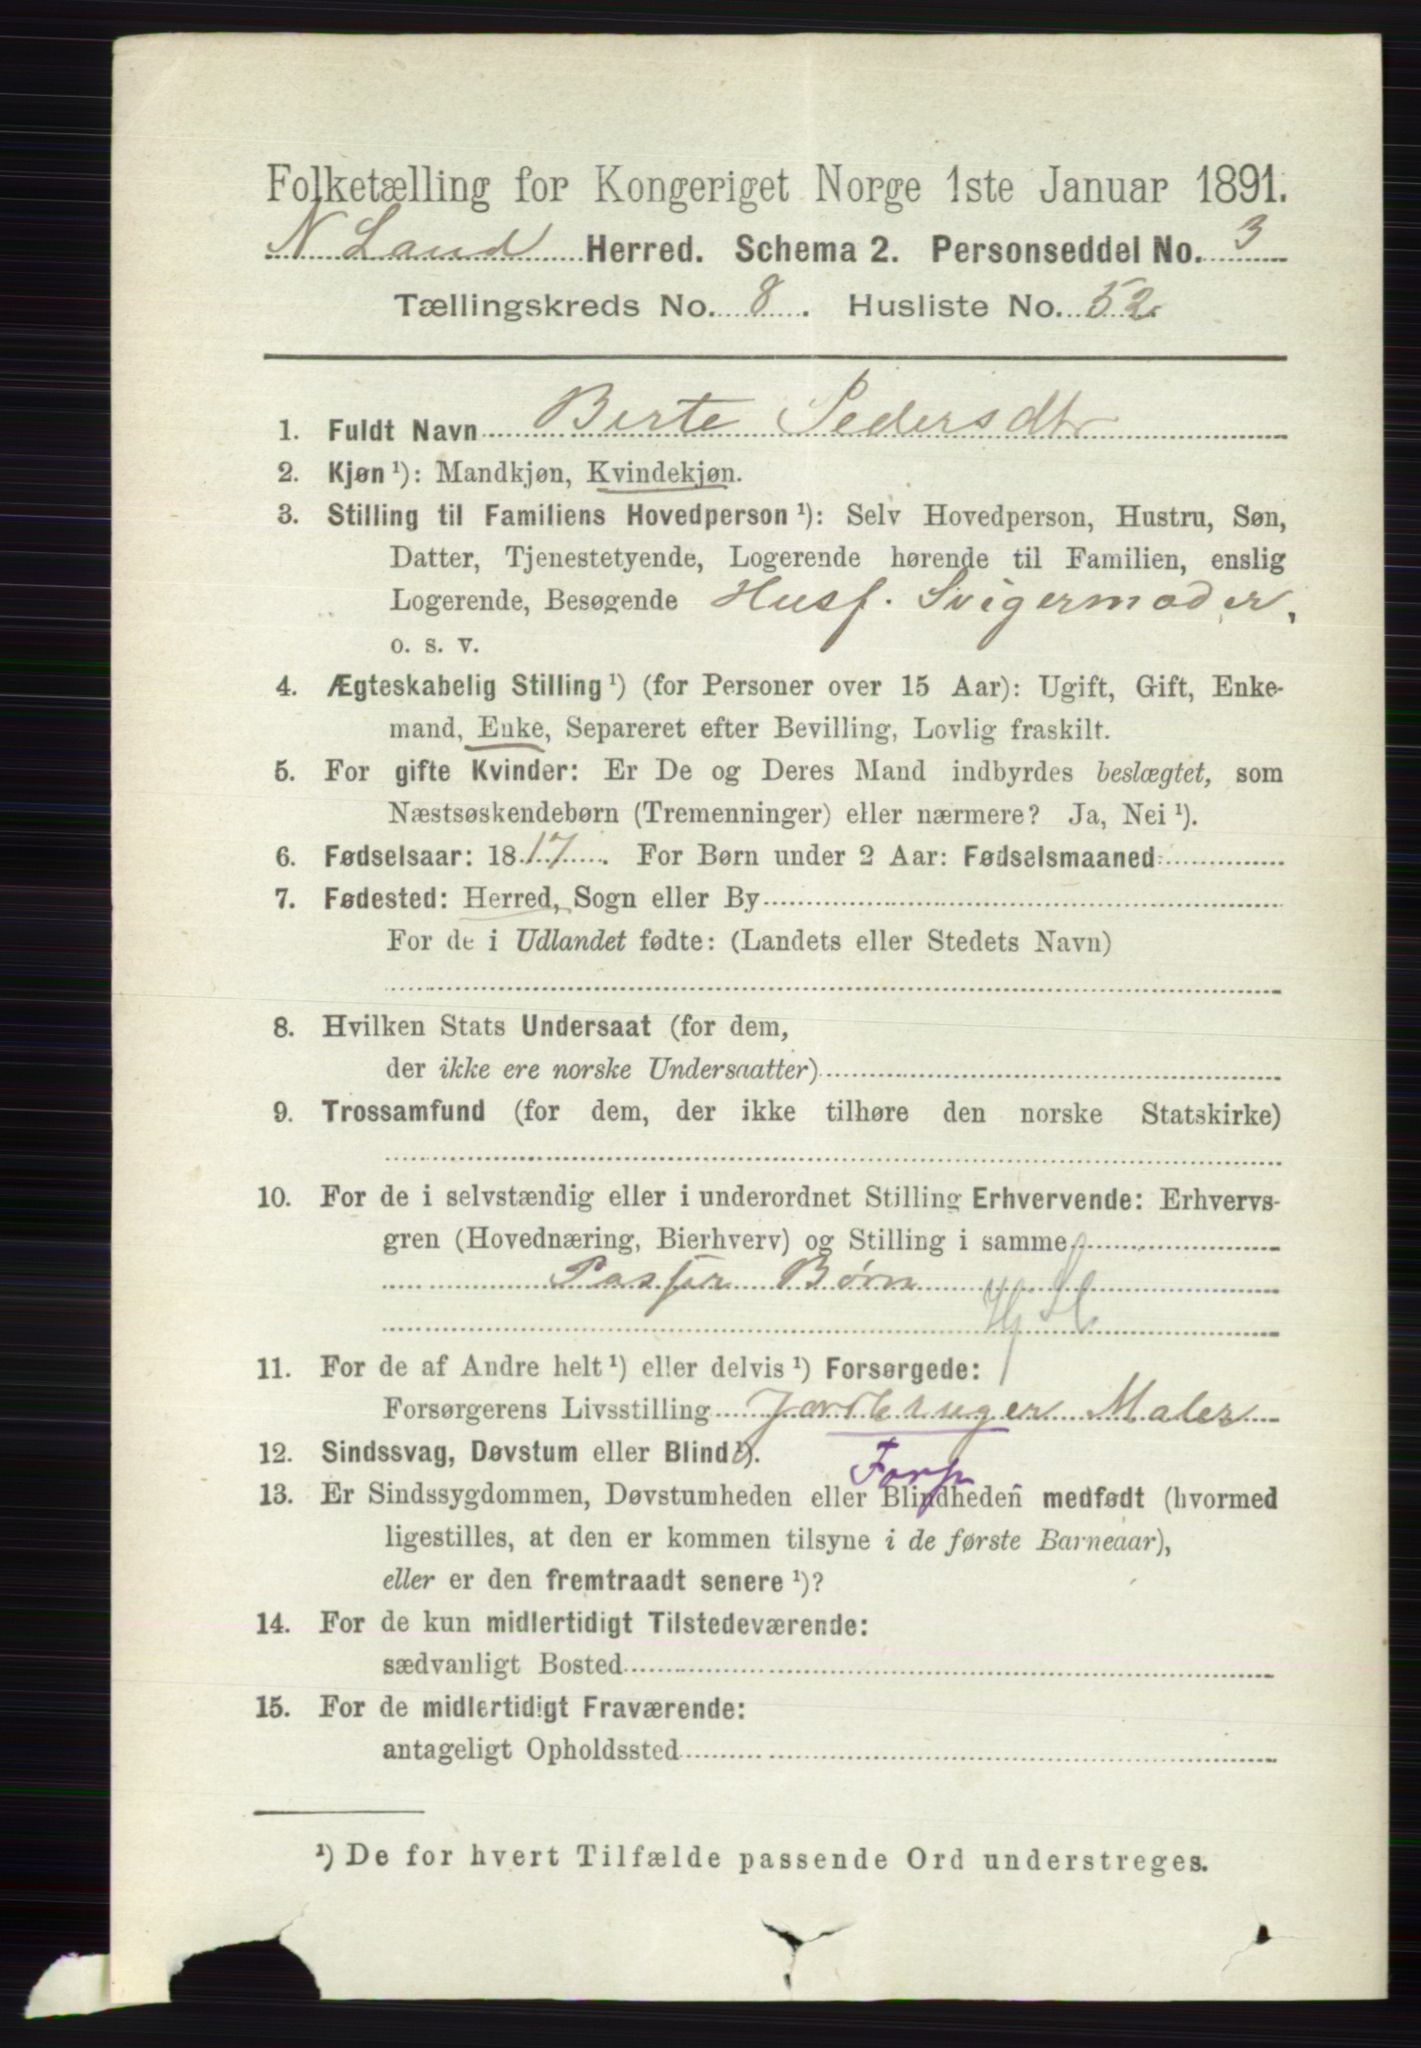 Folketælling for Kongeriget Norge 1ste Januar 1891.
N Land Herred. Schema 2. Personseddel No. 3
Tællingskreds No. 8. Husliste No. 52.
1. Fuldt Navn Birte Pedersdtr
2. Kjøn ¹): Mandkjøn, Kvindekjøn.
3. Stilling til Familiens Hovedperson ¹): Selv Hovedperson, Hustru, Søn,
Datter, Tjenestetyende, Logerende hørende til Familien, enslig
Logerende, Besøgende Husf. Svigermoder,
o. s. v.
4. Ægteskabelig Stilling ¹) (for Personer over 15 Aar): Ugift, Gift, Enke-
mand, Enke, Separeret efter Bevilling, Lovlig fraskilt.
5. For gifte Kvinder: Er De og Deres Mand indbyrdes beslægtet, som
Næstsøskendebørn (Tremenninger) eller nærmere? Ja, Nei ¹).
6. Fødselsaar: 1817. For Børn under 2 Aar: Fødselsmaaned
7. Fødested: Herred, Sogn eller By
For de i Udlandet fødte: (Landets eller Stedets Navn)
8. Hvilken Stats Undersaat (for dem,
der ikke ere norske Undersaatter)
9. Trossamfund (for dem, der ikke tilhøre den norske Statskirke)
10. For de i selvstændig eller i underordnet Stilling Erhvervende: Erhvervs-
gren (Hovednæring, Bierhverv) og Stilling i samme
Passer Børn
11. For de af Andre helt ¹) eller delvis ¹) Forsørgede:
Forsørgerens Livsstilling Jordbruger Maler
12. Sindssvag, Døvstum eller Blind ¹).
Fors
13. Er Sindssygdommen, Døvstumheden eller Blindheden medfødt (hvormed
ligestilles, at den er kommen tilsyne i de første Barneaar),
eller er den fremtraadt senere ¹)?
14. For de kun midlertidigt Tilstedeværende:
sædvanligt Bosted
15. For de midlertidigt Fraværende:
antageligt Opholdssted
¹) De for hvert Tilfælde passende Ord understreges.